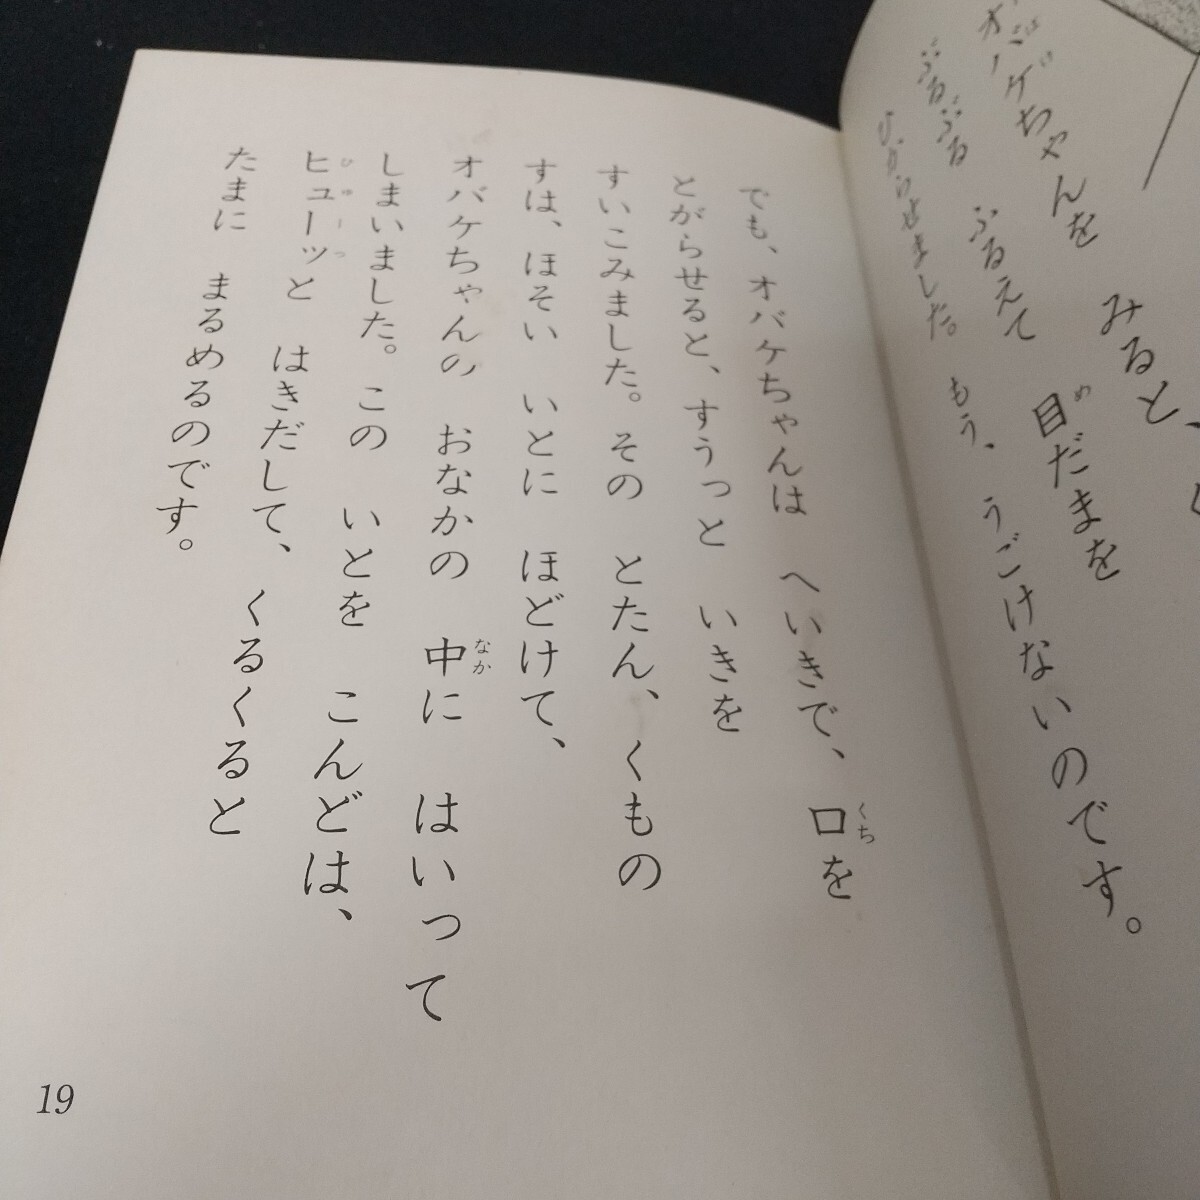 オバケちゃんを　みると、
ぶるぶる　ふるえて　目だまを
ひからせました。もう、うごけないのです。
でも、オバケちゃんは　へいきで、口を
とがらせると、すうっと　いきを
すいこみました。その　とたん、くもの
すは、ほそい　いとに　ほどけて、
オバケちゃんの　おなかの　中に　はいって
しまいました。この　いとを　こんどは、
ヒューッと　はきだして、くるくると
たまに　まるめるのです。
19